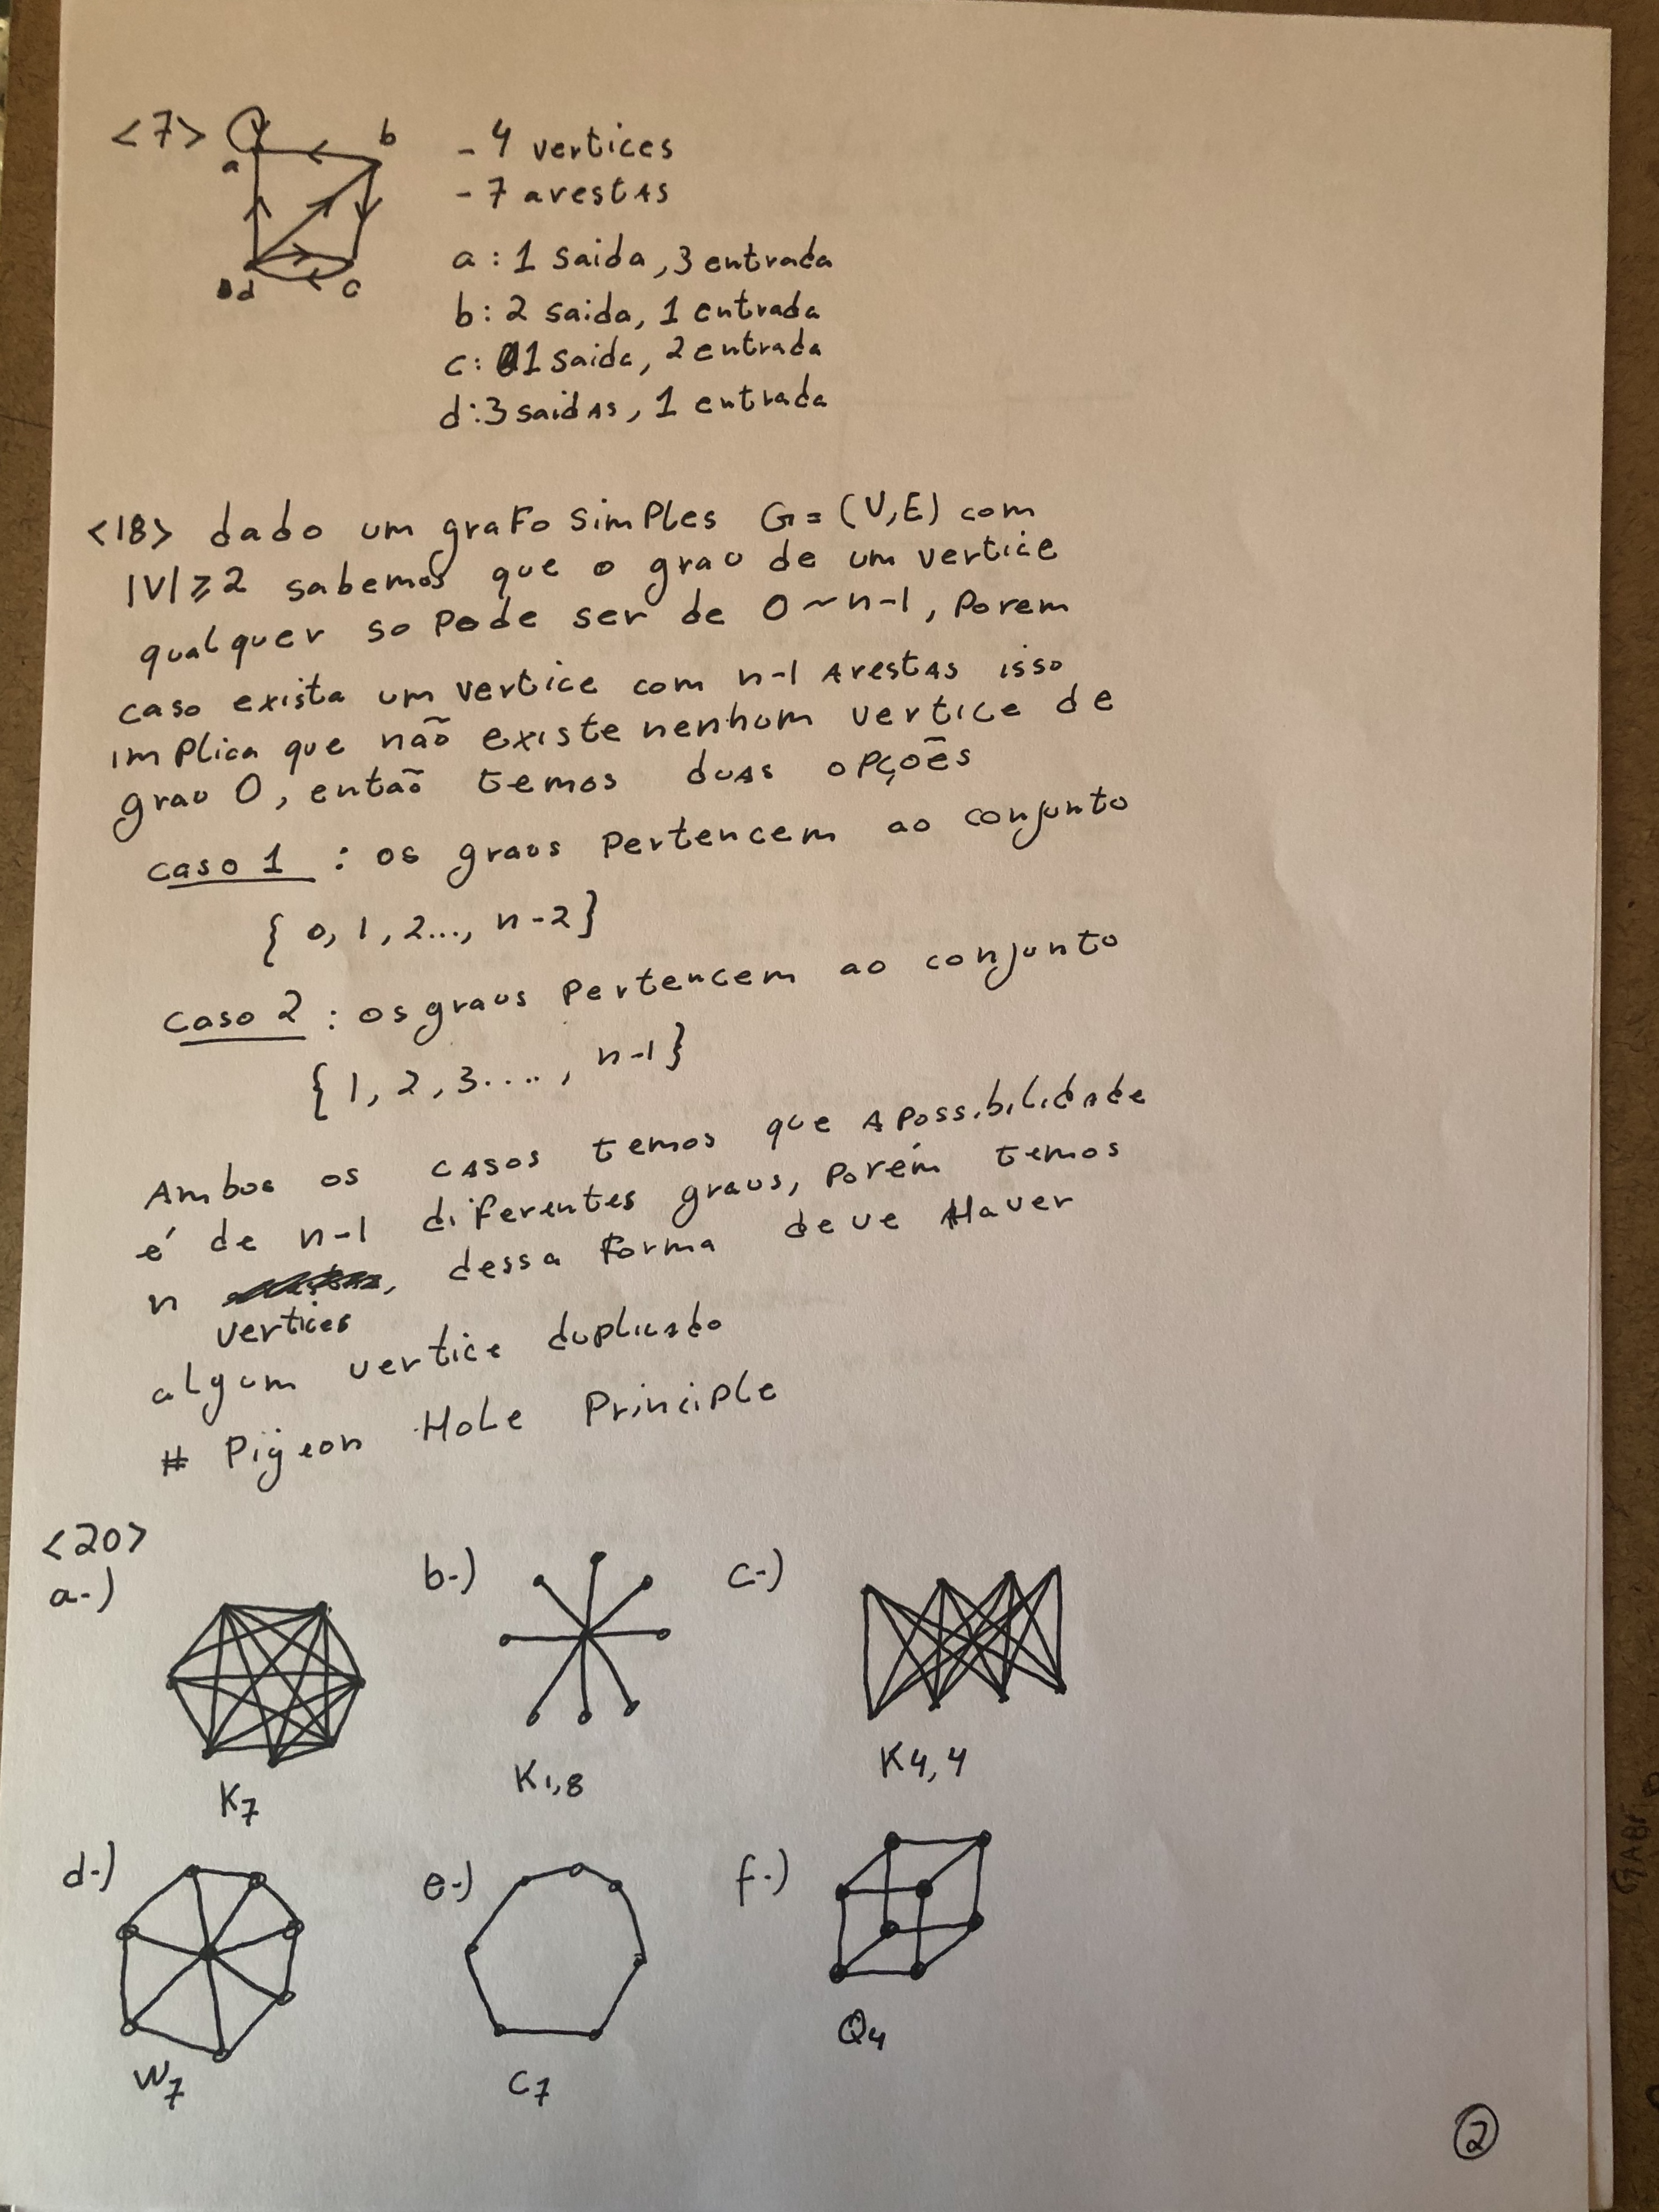 <7>
a
b
d
c
- 4 vertices
- 7 arestas
a : 1 saida, 3 entrada
b: 2 saida, 1 entrada
c: 1 saida, 2 entrada
d:3 saidas, 1 entrada
<18> dado um grafo simples G=(V,E) com
|V|≥2 sabemos que o grau de um vertice
qualquer so pode ser de 0~n-1, porem
caso exista um vertice com n-1 arestas isso
implica que não existe nenhum vertice de
grau 0, então temos duas opções
caso 1 : os graus pertencem ao conjunto
{ 0, 1, 2..., n-2}
caso 2 : os graus pertencem ao conjunto
{ 1, 2, 3...., n-1}
Ambos os casos temos que a possibilidade
é de n-1 diferentes graus, porém temos
n vertices, dessa forma deve Haver
algum vertice duplicado
# Pigeon Hole Principle
<20>
a-) b-) c-)
K7 K1,8 K4,4
d-) e-) f-)
W7 C7 Q4
2